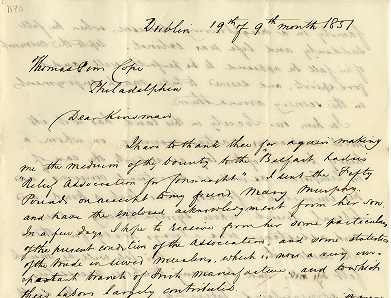 Dublin 19th of 9th month 1851
Thomas Pim Cope
Philadelphia
Dear Kinsman
I have to thank thee for again making
me the medium of thy bounty to the "Belfast Ladies
Relief Association for Connaught" I sent the Fifty
Pounds on receipt to my friend Mary Murphy
and have the enclosed acknowledgment from her son
In a few days I hope to receive from her some particulars
of the present condition of the Association, and some statistics
of the trade in sewed muslins, which is now a very im-
portant branch of Irish manufacture and to which
their labors largely contributed